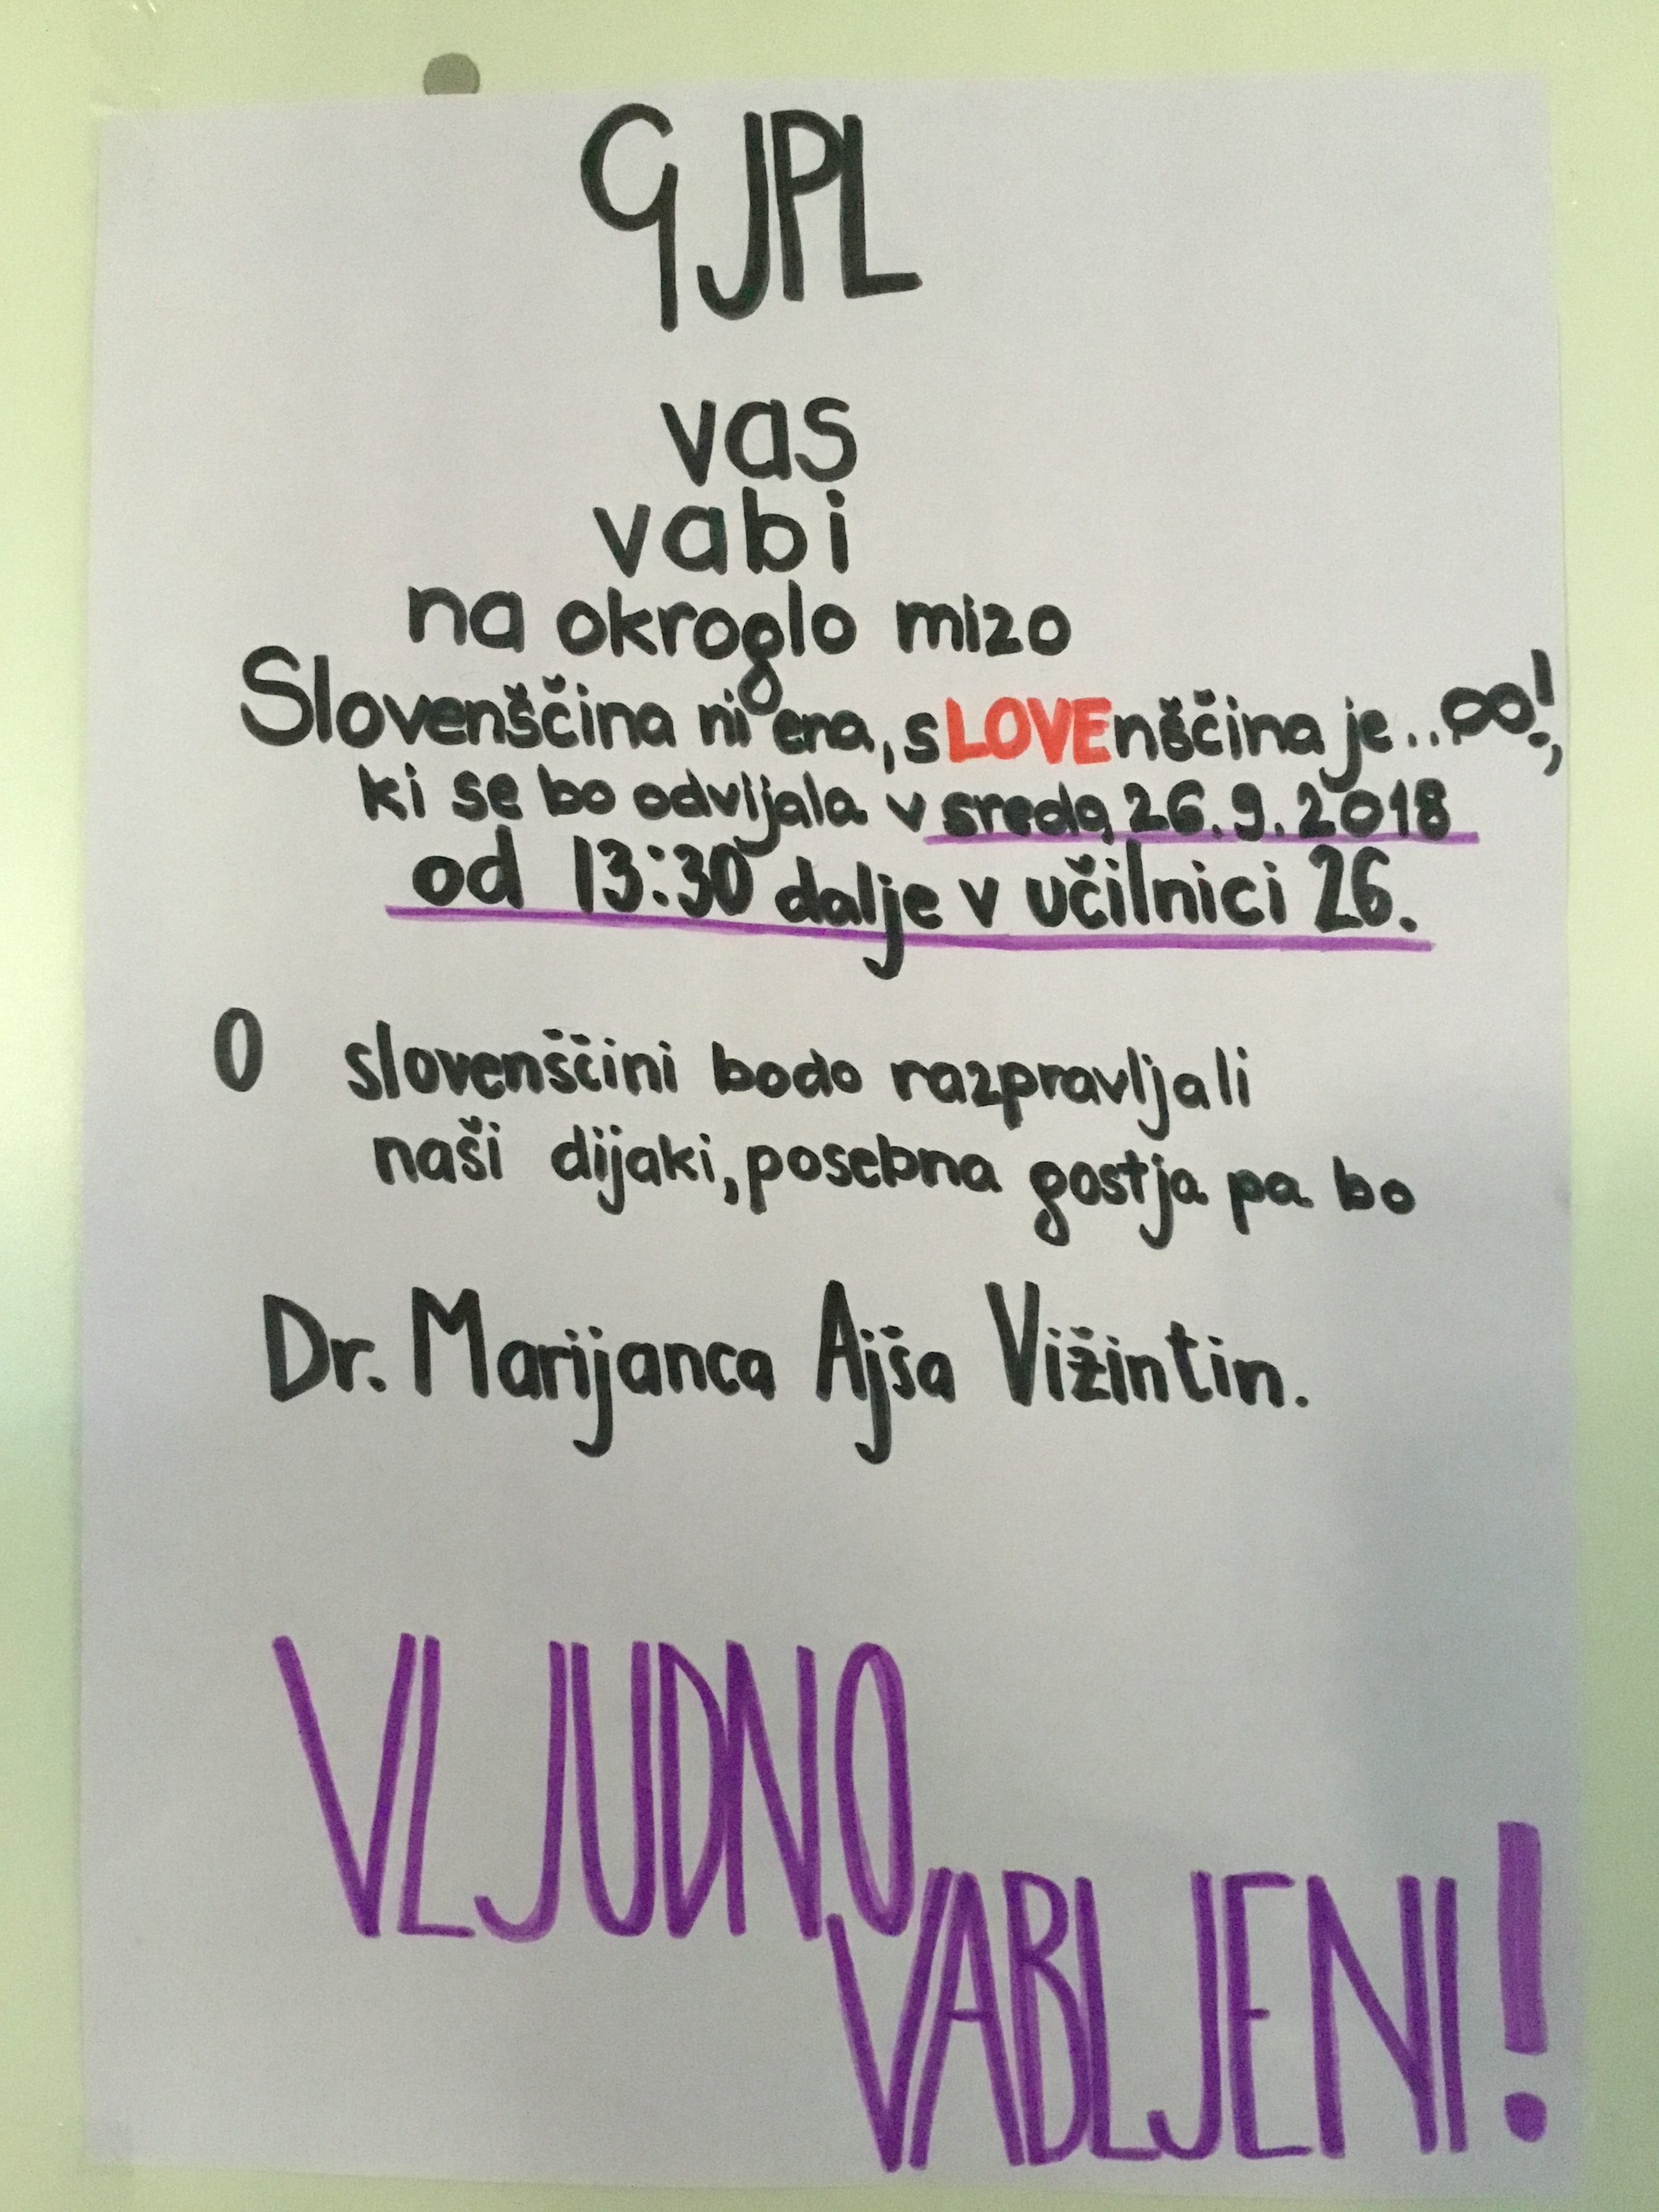 GJPL
vas
vabi
na okroglo mizo
Slovenščina ni ena, sLOVEnščina je...∞!,
ki se bo odvijala v sredo, 26.9.2018
od 13:30 dalje v učilnici 26.
O slovenščini bodo razpravljali
naši dijaki, posebna gostja pa bo
Dr. Marijanca Ajša Vižintin.
VLJUDNO
VABLJENI!